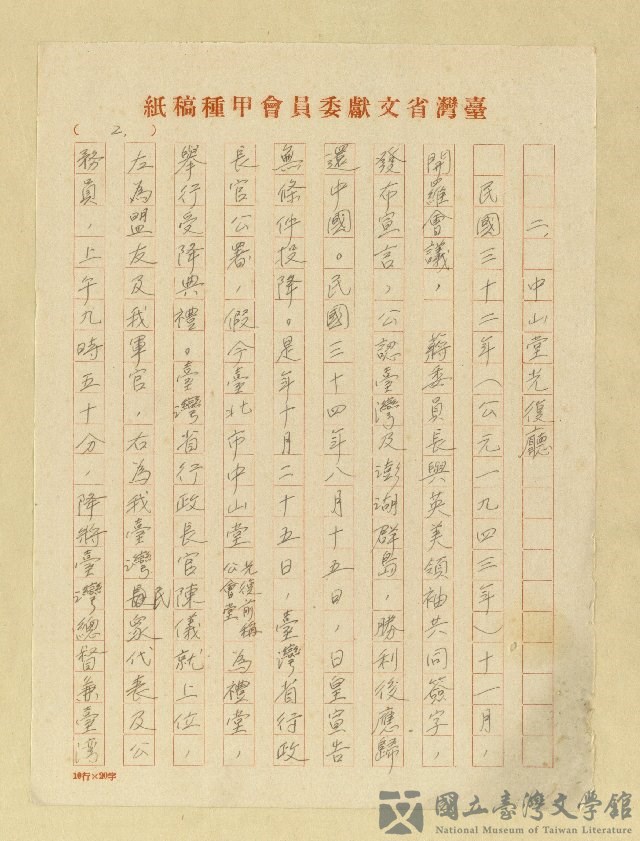 紙稿種甲會員委獻文省灣臺
( 2. )
二、中山堂光復廳
民國三十二年（公元一九四三年）十一月，
開羅會議，　蔣委員長與英美領袖共同簽字，
發布宣言，公認臺灣及澎湖群島，勝利後應歸
還中國。民國三十四年八月十五日，日皇宣告
無條件投降。是年十月二十五日，臺灣省行政
長官公署，假今臺北市中山堂光復前稱公會堂為禮堂，
舉行受降典禮。臺灣省行政長官陳儀就上位，
左為盟友及我軍官，右為我臺灣民眾代表及公
務員，上午九時五十分，降將臺灣總督兼臺灣
10行×20字
國立臺灣文學館
National Museum of Taiwan Literature